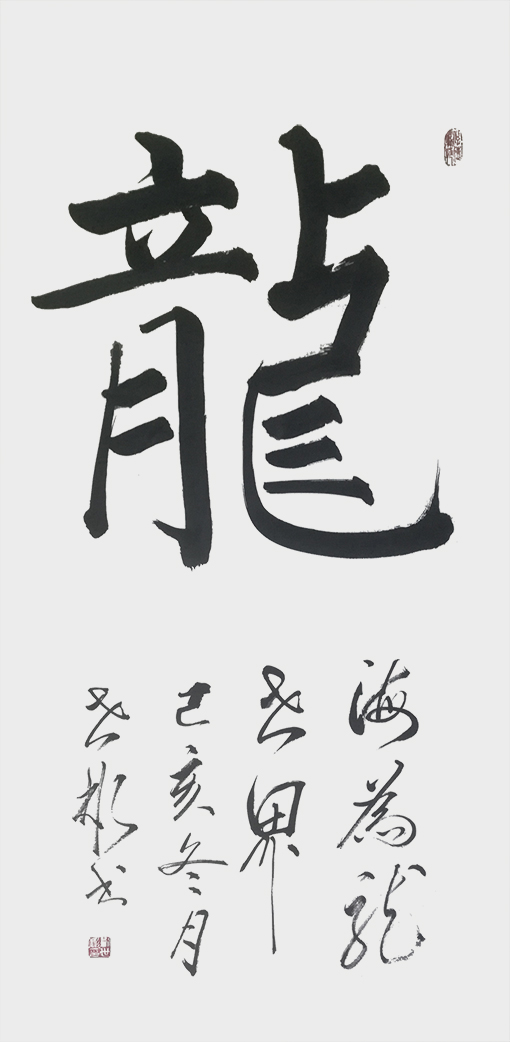 龍
海為龍
世界
己亥冬月
世彬书